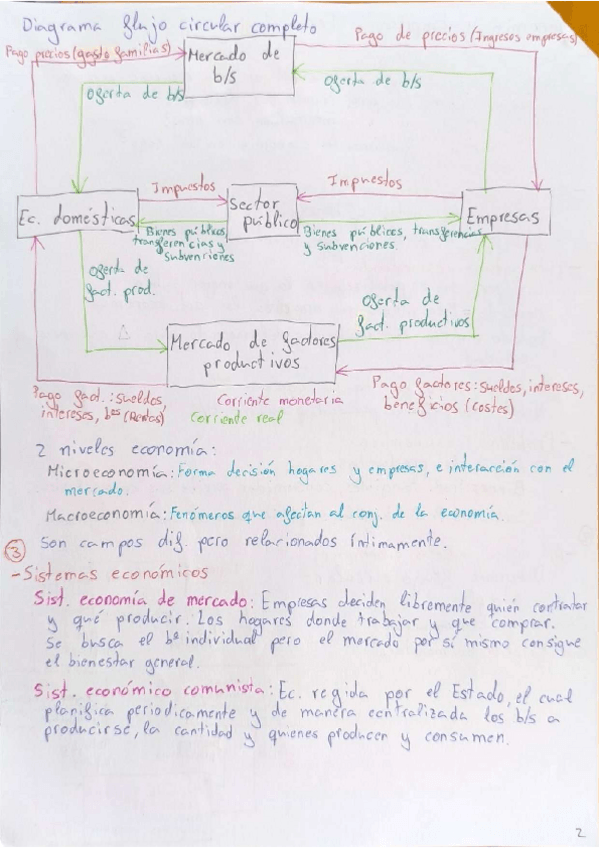 Diagrama flujo circular completo
Pago precios (gasto familias)
Mercado de
b/s
Pago de precios (Ingresos empresas)
Oferta de b/s
Oferta de b/s
Impuestos
Impuestos
Ec. domésticas
Sector
público
Empresas
Bienes públicos,
transferencias y
subvenciones
Bienes públicos, transferencias
y subvenciones.
Oferta de
fact. prod.
Oferta de
fact. productivos
Mercado de factores
productivos
Pago fact.: sueldos,
intereses, bos (Rentas)
Corriente monetaria
Corriente real
Pago factores: sueldos, intereses,
beneficios (costes)
2 niveles economía:
Microeconomía: Forma decisión hogares y empresas, e interacción con el
mercado.
Macroeconomía: Fenómeros que afectan al conj. de la economía.
Son campos dif. pero relacionados íntimamente.
3
- Sistemas económicos
Sist. economía de mercado: Empresas deciden libremente quién contratar
y qué producir. Los hogares donde trabajar y que comprar.
Se busca el bº individual pero el mercado por sí mismo consigue
el bienestar general.
Sist. económico comunista: Ec. regida por el Estado, el cual
planifica periodicamente y de manera centralizada los b/s a
producirse, la cantidad y quienes producen y consumen.
2